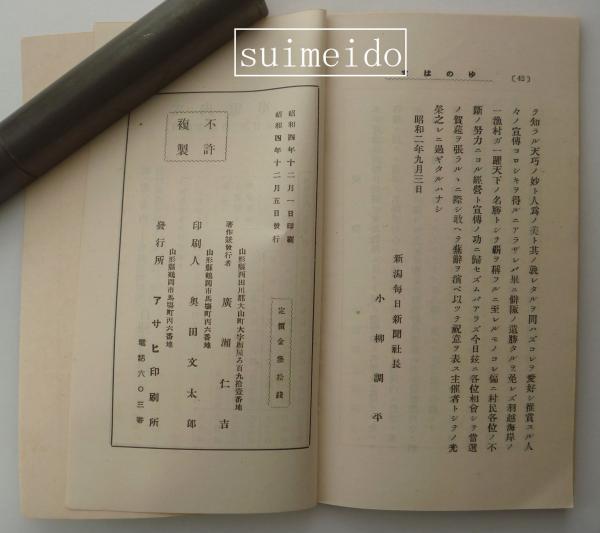 suimeido
ゆのはま
〔45〕
ヲ知ラル天巧ノ妙ト人爲ノ美ト其ノ孰レタルヲ問ハズコレヲ愛好シ推賞スル人
々ノ宣傳ヨロシキヲ得ルニアラザレバ畢ニ僻陬ノ遺勝タルヲ免レズ羽越海岸ノ
一漁村ガ一躍天下ノ名勝トシテ覇ヲ稱フルニ至レルモノコレ偏ニ村民各位ノ不
斷ノ努力ニヨル經營ト宣傳ノ功ニ歸セズムバアラズ今日玆ニ各位相會シテ當選
ノ賀莚ヲ張ラルヽニ際シ敢ヘテ蘇辭ヲ演ベ以ツテ祝意ヲ表ス主催者トシテノ光
榮之レニ過ギタルハナシ
昭和二年九月三日
新潟毎日新聞社長
小柳調平
昭和四年十二月一日印刷
昭和四年十二月五日發行
不許
複製
定價金參拾錢
山形縣西田川郡大山町大字
百九拾壹番地
著作兼發行者
廣瀬仁吉
山形縣鶴岡市馬場町丙六番地
印刷人 奥田文太郎
山形縣鶴岡市馬場町丙六番地
發行所 アサヒ印刷所
電話六〇三番